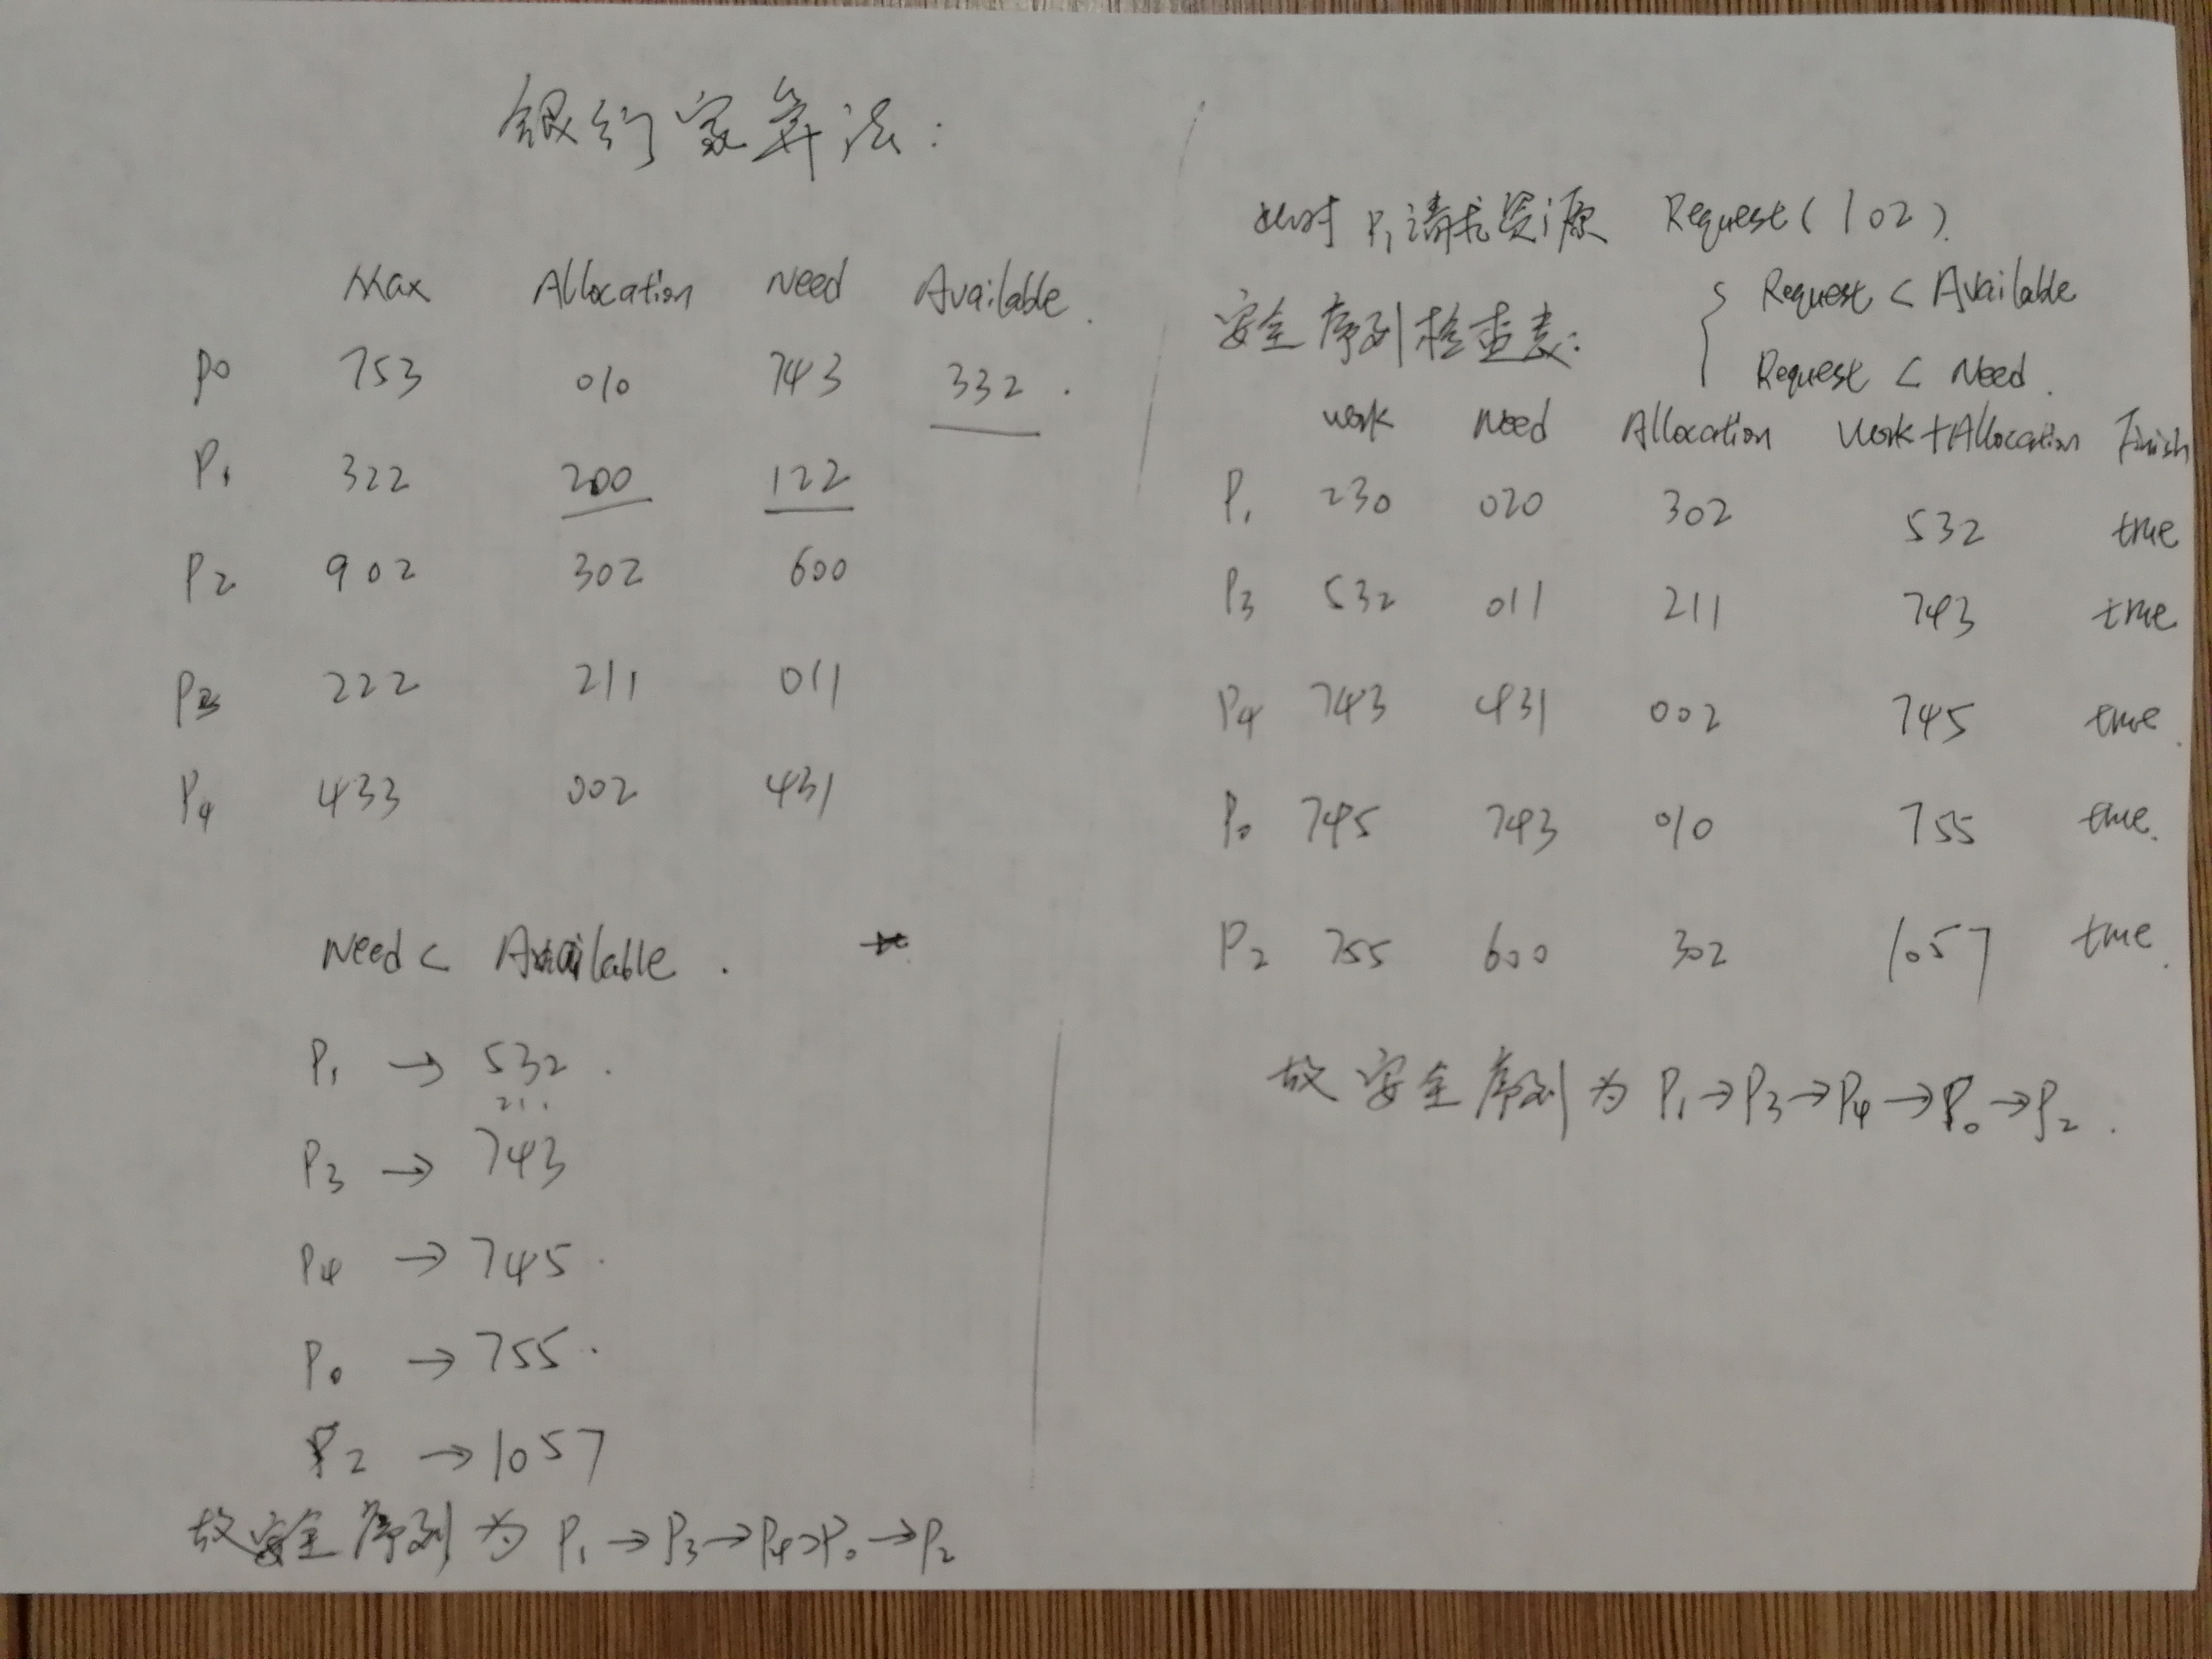 银行家算法:
Max Allocation Need Available.
P0 753 010 743 332.
P1 322 200 122
P2 902 302 600
P3 222 211 011
P4 433 002 431
Need < Available.
P1 → 532.
211
P3 → 743
P4 → 745.
P0 → 755.
P2 → 1057
故安全序列为 P1→P3→P4→P0→P2
此时 P1请求资源 Request(102).
安全序列检查表: { Request < Available
Request < Need.
work Need Allocation Work+Allocation Finish
P1 230 020 302 532 true
P3 532 011 211 743 true
P4 743 431 002 745 true.
P0 745 743 010 755 true.
P2 755 600 302 1057 true.
故安全序列为 P1→P3→P4→P0→P2.